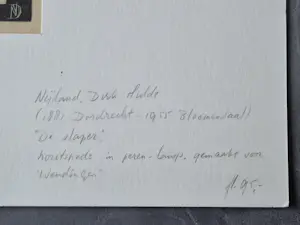 Nijland, Dirk Hidde
(1881 Dordrecht - 1955 Bloemendaal)
"De slager"
houtsnede in peren-, gemaakt voor
"Wendingen"
fl. 95,-